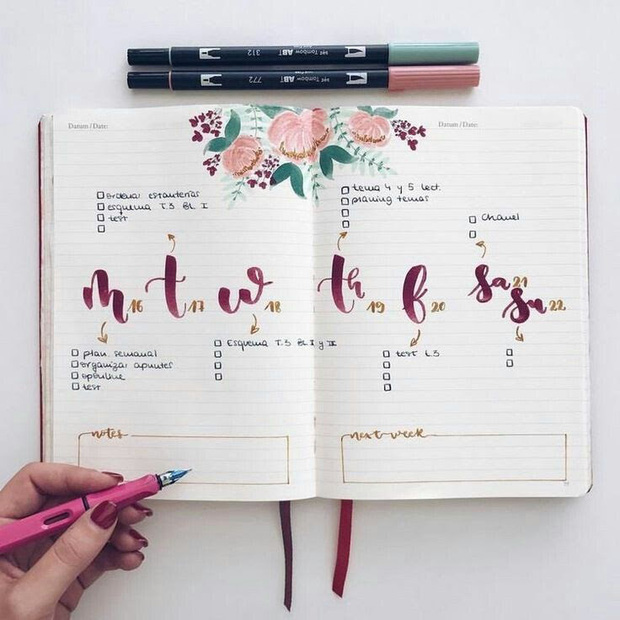 312 ABT Tombow
772 ABT Tombow
Datum / Date:
Datum / Date:
ordenar estanterias
esquema T.3 BL I
test
tema 4 y 5 lect.
planing temas
Chanel
m 16
t 17
w 18
th 19
f 20
sa 21
su 22
plan semanal
organizar apuntes
test
Esquema T.3 BL I y II
test t.3
notes
next week